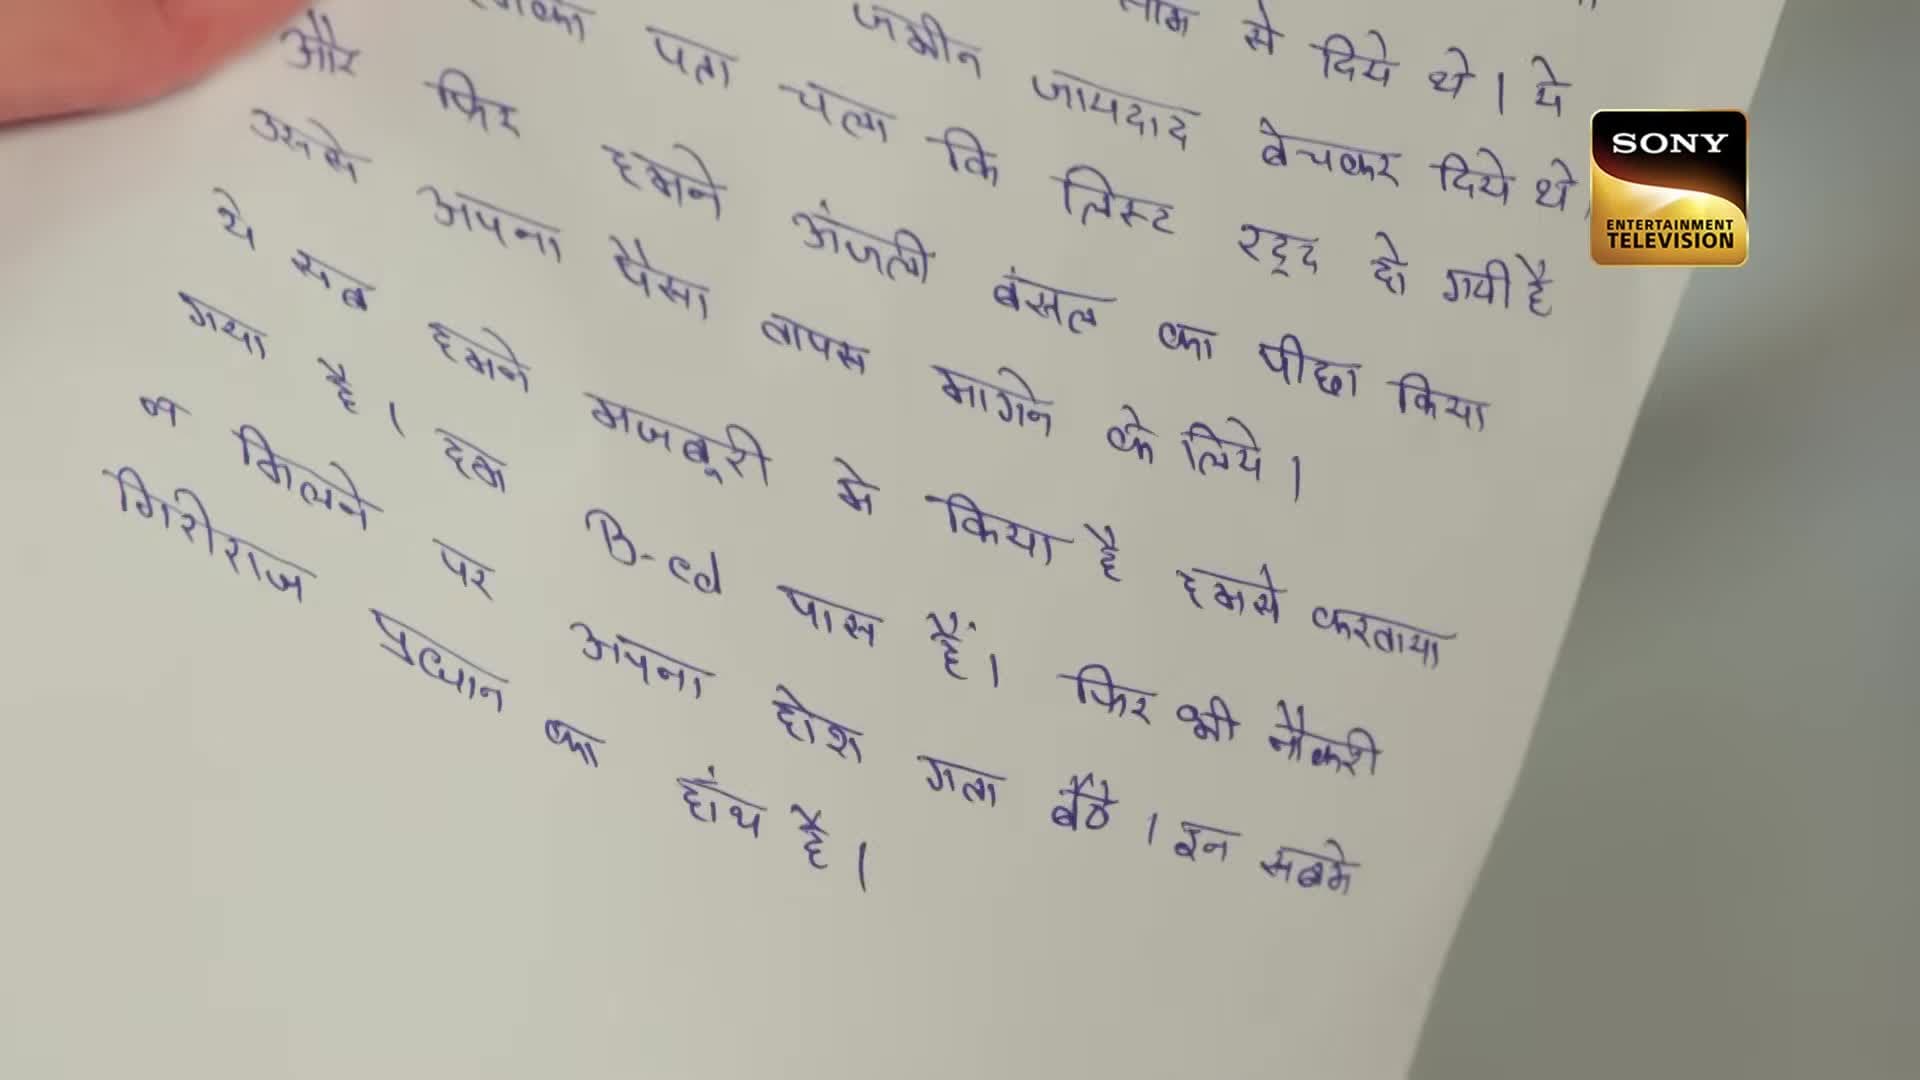 नाम से दिये थे। ये
जमीन जायदाद बेचकर दिये थे।
पता चला कि लिस्ट रद्द हो गयी है
और फिर हमने अंजली बंसल का पीछा किया
उससे अपना पैसा वापस मागने के लिये।
ये सब हमने मजबूरी मे किया है हमसे करवाया
गया है। हम B-ed पास हैं। फिर भी नौकरी
न मिलने पर अपना होश गवा बैठे। इन सबमे
गिरीराज प्रधान का हांथ है।
SONY
ENTERTAINMENT
TELEVISION